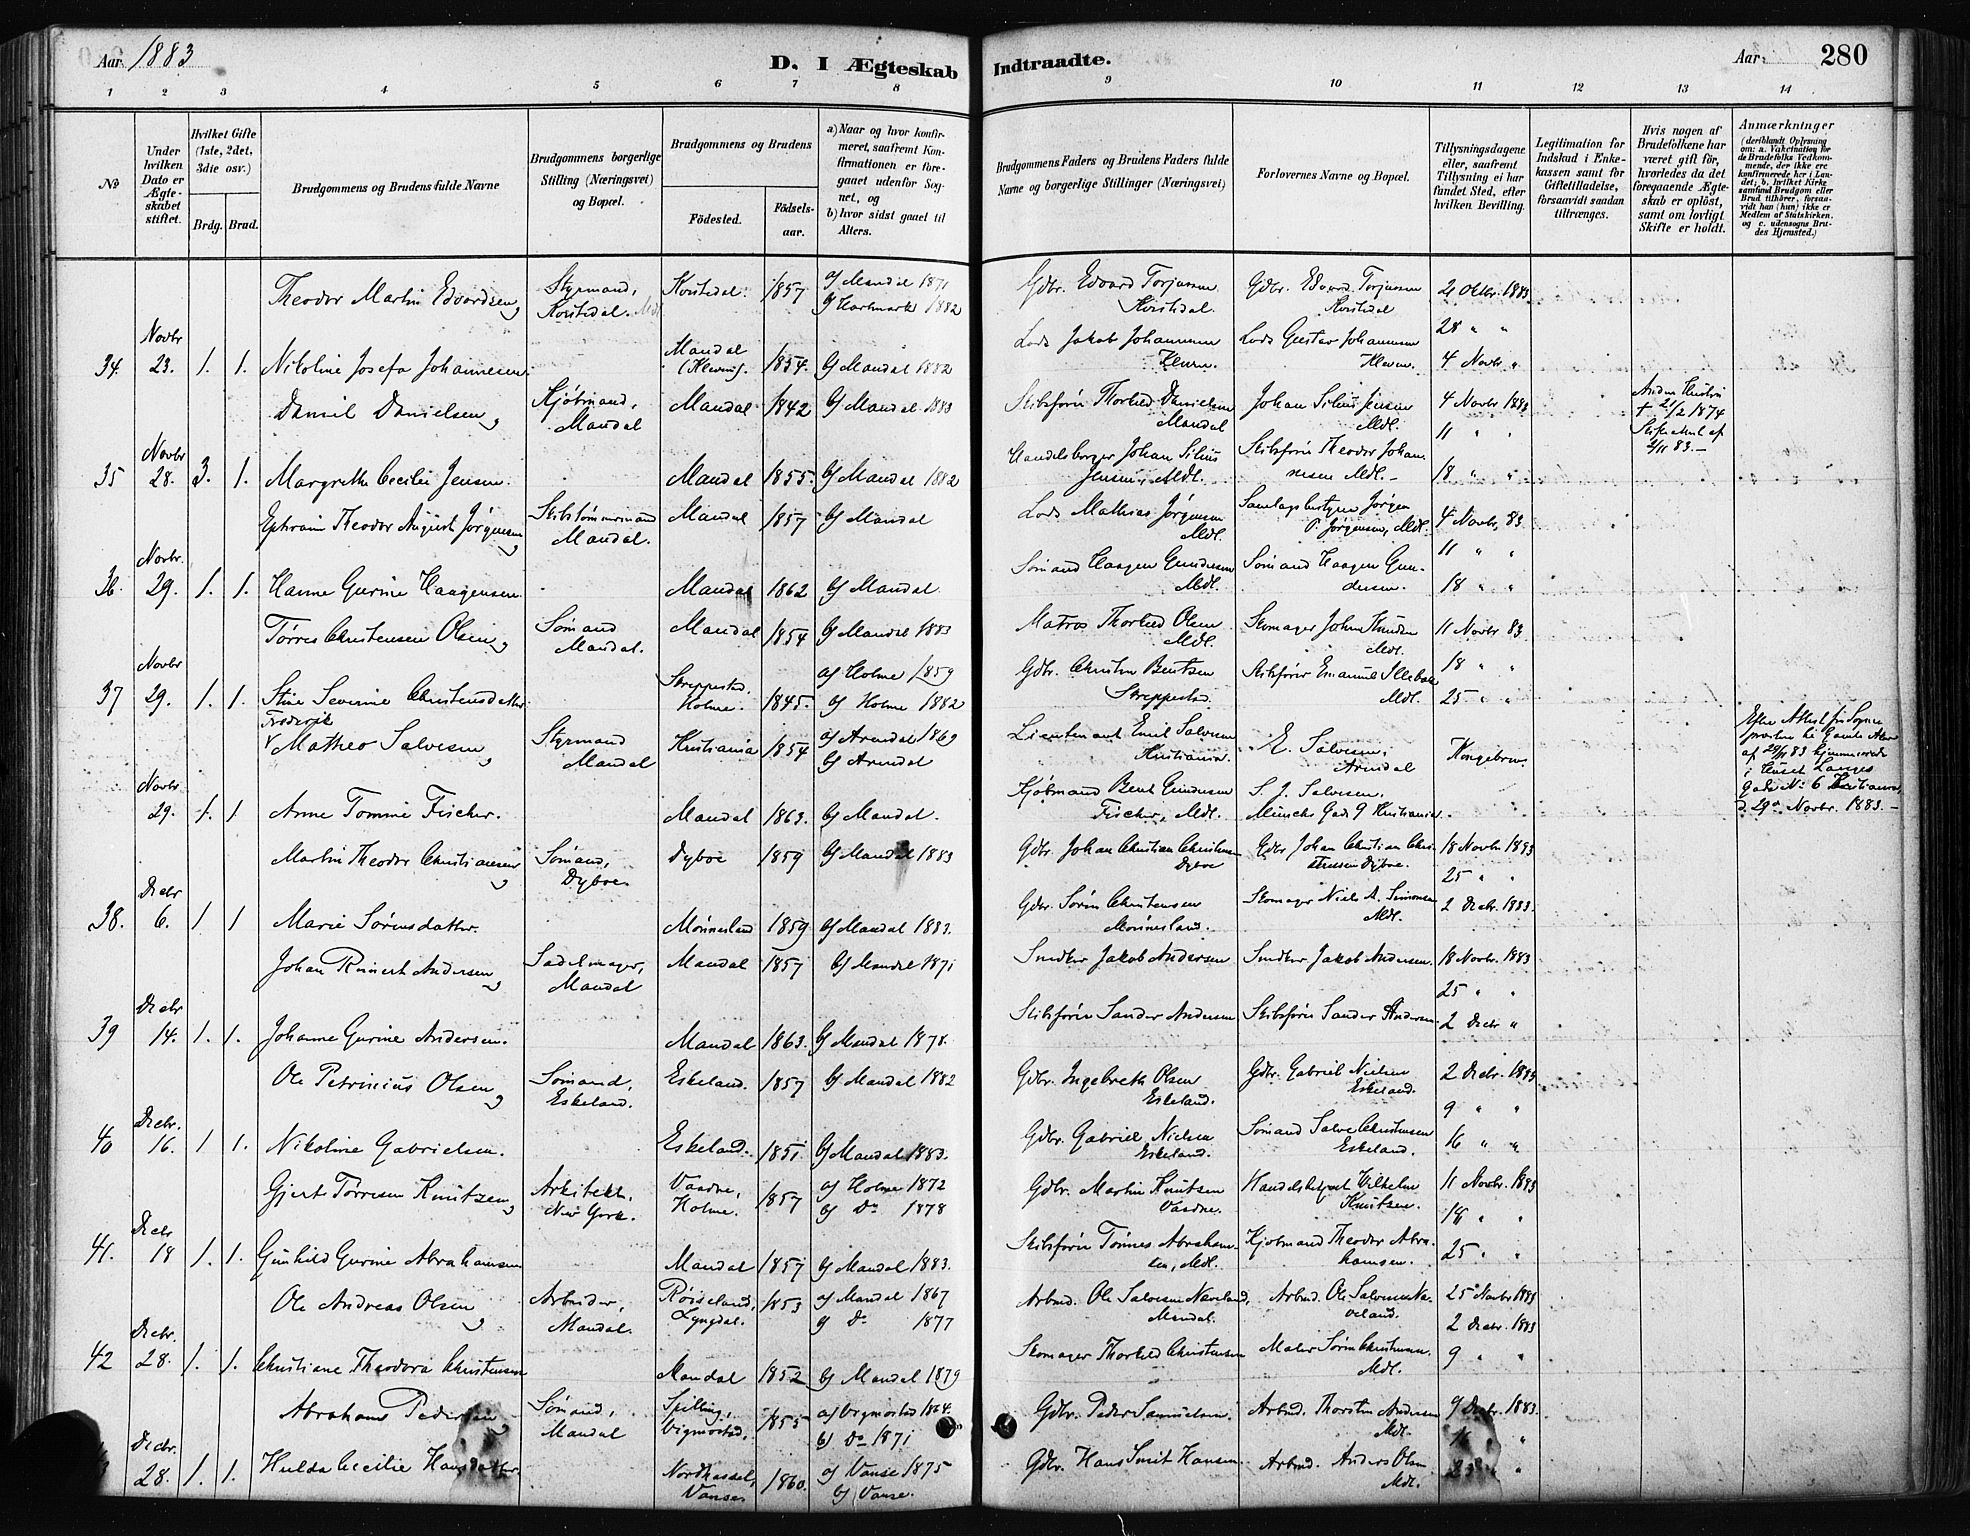 Aar. 1883
D. I Ægteskab Indtraadte.
Aar: 280
1 2 3 4 5 6 7 8 9 10 11 12 13 14
No
Under hvilken Dato er Ægteskabet stiftet.
Hvilket Gifte (1ste, 2det, 3die osv.)
Brdg. Brud.
Brudgommens og Brudens fulde Navne
Brudgommens borgerlige Stilling (Næringsvei) og Bopæl.
Brudgommens og Brudens
Födested.
Födsels-aar.
a) Naar og hvor konfirmeret, saafremt Konfirmationen er foregaaet udenfor Sognet, og
b) hvor sidst gaaet til Alters.
Brudgommens Faders og Brudens Faders fulde Navne og borgerlige Stillinger (Næringsvei)
Forlovernes Navne og Bopæl.
Tillysningsdagene eller, saafremt Tillysning ei har fundet Sted, efter hvilken Bevilling.
Legitimation for Indskud i Enkekassen samt for Giftetilladelse, forsaavidt saadan tiltrænges.
Hvis nogen af Brudefolkene har været gift før, hvorledes da det foregaaende Ægteskab er opløst, samt om lovligt Skifte er holdt.
Anmærkninger
Theodor Martin Edvardsen, Styrmand, Korstedal. 1857 a) Mandal 1871 b) Hartmark 1882 Gdbr. Edvard Torjussen Gdbr. Edvard Torjussen 21 Oktbr. 1883
28 " "
34. Novbr 23. 1. 1. Nikoline Josefa Johannesen Mandal 1854. b) Mandal 1882 Lods Jakob Johannesen Lods Gustav Johannesen 4 Novbr "
Daniel Danielsen, Kjøbmand, Mandal Mandal 1842 b) Mandal 1883 Skibsfører Thorkild Danielsen Mandal Johan Silius Jensen Mdl. 4 Novbr 1883
11 " "
† 21/2 1874
2/11 83.
35 Novbr 28. 3. 1. Margrethe Cecilie Jensen. Mandal 1855. b) Mandal 1882 Handelsborger Johan Silius Jensen, Mdl. Skibsfører Theodor Johannesen Mdl. 18 " "
Ephraim Theodor August Jørgensen, Skibstømmermand Mandal. Mandal 1857 b) Mandal Lods Mathias Jørgensen Mdl. Jørgen P. Jørgensen, Mdl. 4 Novbr, 83
11 " "
36. Novbr. 29. 1. 1. Hanne Gurine Haagensen. Mandal 1862 b) Mandal. Sømand Haagen Gundersen Mdl. Sømand Haagen Gundersen. 18 " "
Tørres Christensen Olsen, Sømand Mandal. Mandal 1854 b) Mandal 1883 Matros Thorkild Olsen Mdl. Skomager Johan Knudsen Mdl. 11 Novbr 83
18 " "
37 Novbr 29. 1. 1. Stine Severine Christensdatter Holme. 1845. a) Holme 1859 b) Holme 1882 Gdbr. Christen Bentsen Skibsfører Emanuel Mdl. 25 " "
Frederik Matheo Salvesen, Styrmand Mandal Kristiania 1854 a) Arendal 1869 b) Arendal Lieutenant Emil Salvesen Kristiania. E. Salvesen, Arendal Kongebrev.
Novbr 29. 1. 1 Anne Tomine Fischer. Mandal 1863. b) Mandal. Kjøbmand Bent Gundersen Fischer, Mdl. S. J. Salvesen, Munchs Gade 9 Kristiania.
Efter Attest fra Sognepræsten til Gamle Aker af 29/11 83 hjemmeviede i Huset Langes Gade No 6 Kristiania, d. 29de Novbr. 1883.
Martin Theodor Christiansen, Sømand, Dyboe. Dyboe 1859 b) Mandal 1883 Gdbr. Johan Christian Christensen Dyboe Gdbr. Johan Christian Christensen Dyboe. 18 Novbr 1883
25 " "
38. Decbr 6. 1 1 Marie Sørensdatter. Mønnesland 1859 b) Mandal 1883. Gdbr. Sørен Christensen Mønnesland. Skomager Niels A. Simonsen Mdl. 2 Decbr. 1883.
Johan Reinert Andersen, Sadelmager, Mandal Mandal 1857 b) Mandal 1871 Snedker Jakob Andersen Snedker Jakob Andersen. 18 Novbr. 1883
25 " "
39 Decbr 14. 1. 1. Johanne Gurine Andersen. Mandal 1863. b) Mandal 1878. Skibsfører Sander Andersen Skibsfører Sander Andersen. 2 Decbr "
Ole Petrinius Olsen, Sømand, Eskeland. Eskeland. 1857 b) Mandal 1882 Gdbr. Ingebreth Olsen Eskeland. Gdbr. Gabriel Nielsen Eskeland. 2 Decbr. 1883
9 " "
40 Decbr. 16. 1 1. Nikoline Gabrielsen. Eskeland. 1851. b) Mandal 1883. Gdbr. Gabriel Nielsen Eskeland. Sømand Salve Christensen Eskeland. 16 " "
Gjert Tørresen Knutzen, Arkitekt, New York. Vaadne, Holme. 1857 a) Holme 1872 b) Do 1878 Gdbr. Martin Knutsen Vaadne. Vilhelm Knutsen. 11 Novbr. 1883
18 " "
41. Decbr 18 1. 1. Gunhild Gurine Abrahamsen Mandal 1857 b) Mandal 1883. Skibsfører Tønnes Abrahamsen, Mdl. Kjøbmand Theodor Abrahamsen. 25 " "
Ole Andreas Olsen, Arbeider, Mandal. Røiseland, Lyngdal. 1853 a) Mandal 1867 b) Do 1877 Arbeid. Ole Salvesen Naveland, Mandal. Arbeid. Ole Salvesen Naveland. 25 Novbr 1883
2 Decbr. 1883
42 Decbr. 28. 1. 1. Christiane Theodora Christensen Mandal 1852 b) Mandal 1879 Skomager Thorkild Christensen Maler Søren Christensen, Mdl. 9 " "
Abraham Pedersen Sømand, Mandal Spilling, Vigmostad. 1855 a) Vigmostad 1864. b) Do 1871 Gdbr. Peder Samuelsen. Arbeid. Thorsten Andersen Mdl. 9 Decbr. 1883.
Decbr. 28. 1. 1. Hulda Cecilie Hansdatter. Nordhassel, Vanse. 1860. a) Vanse 1875 b) Vanse. Gdbr. Hans Smit Hansen. Arbeid. Anders Olsen Mdl.